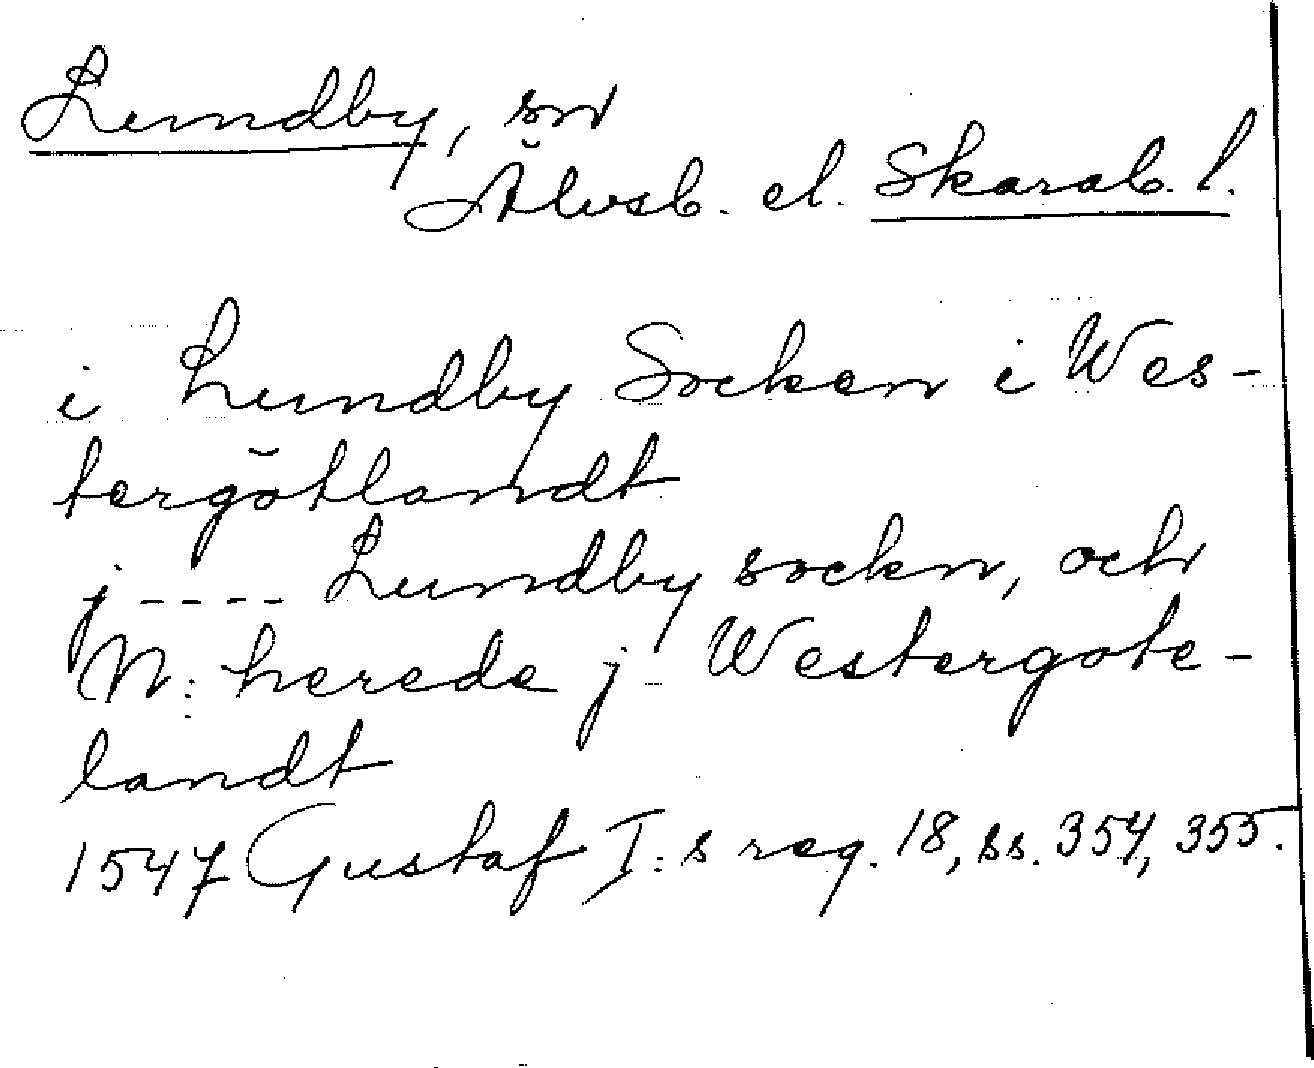 Lundby, sn
Älvsb. el. Skarab. l.
i Lundby Socken i Wes-
tergötlandt
j ---- Lundby sockn, och
N: herede j Westergote-
landt
1547 Gustaf I:s reg. 18, ss. 354, 355.